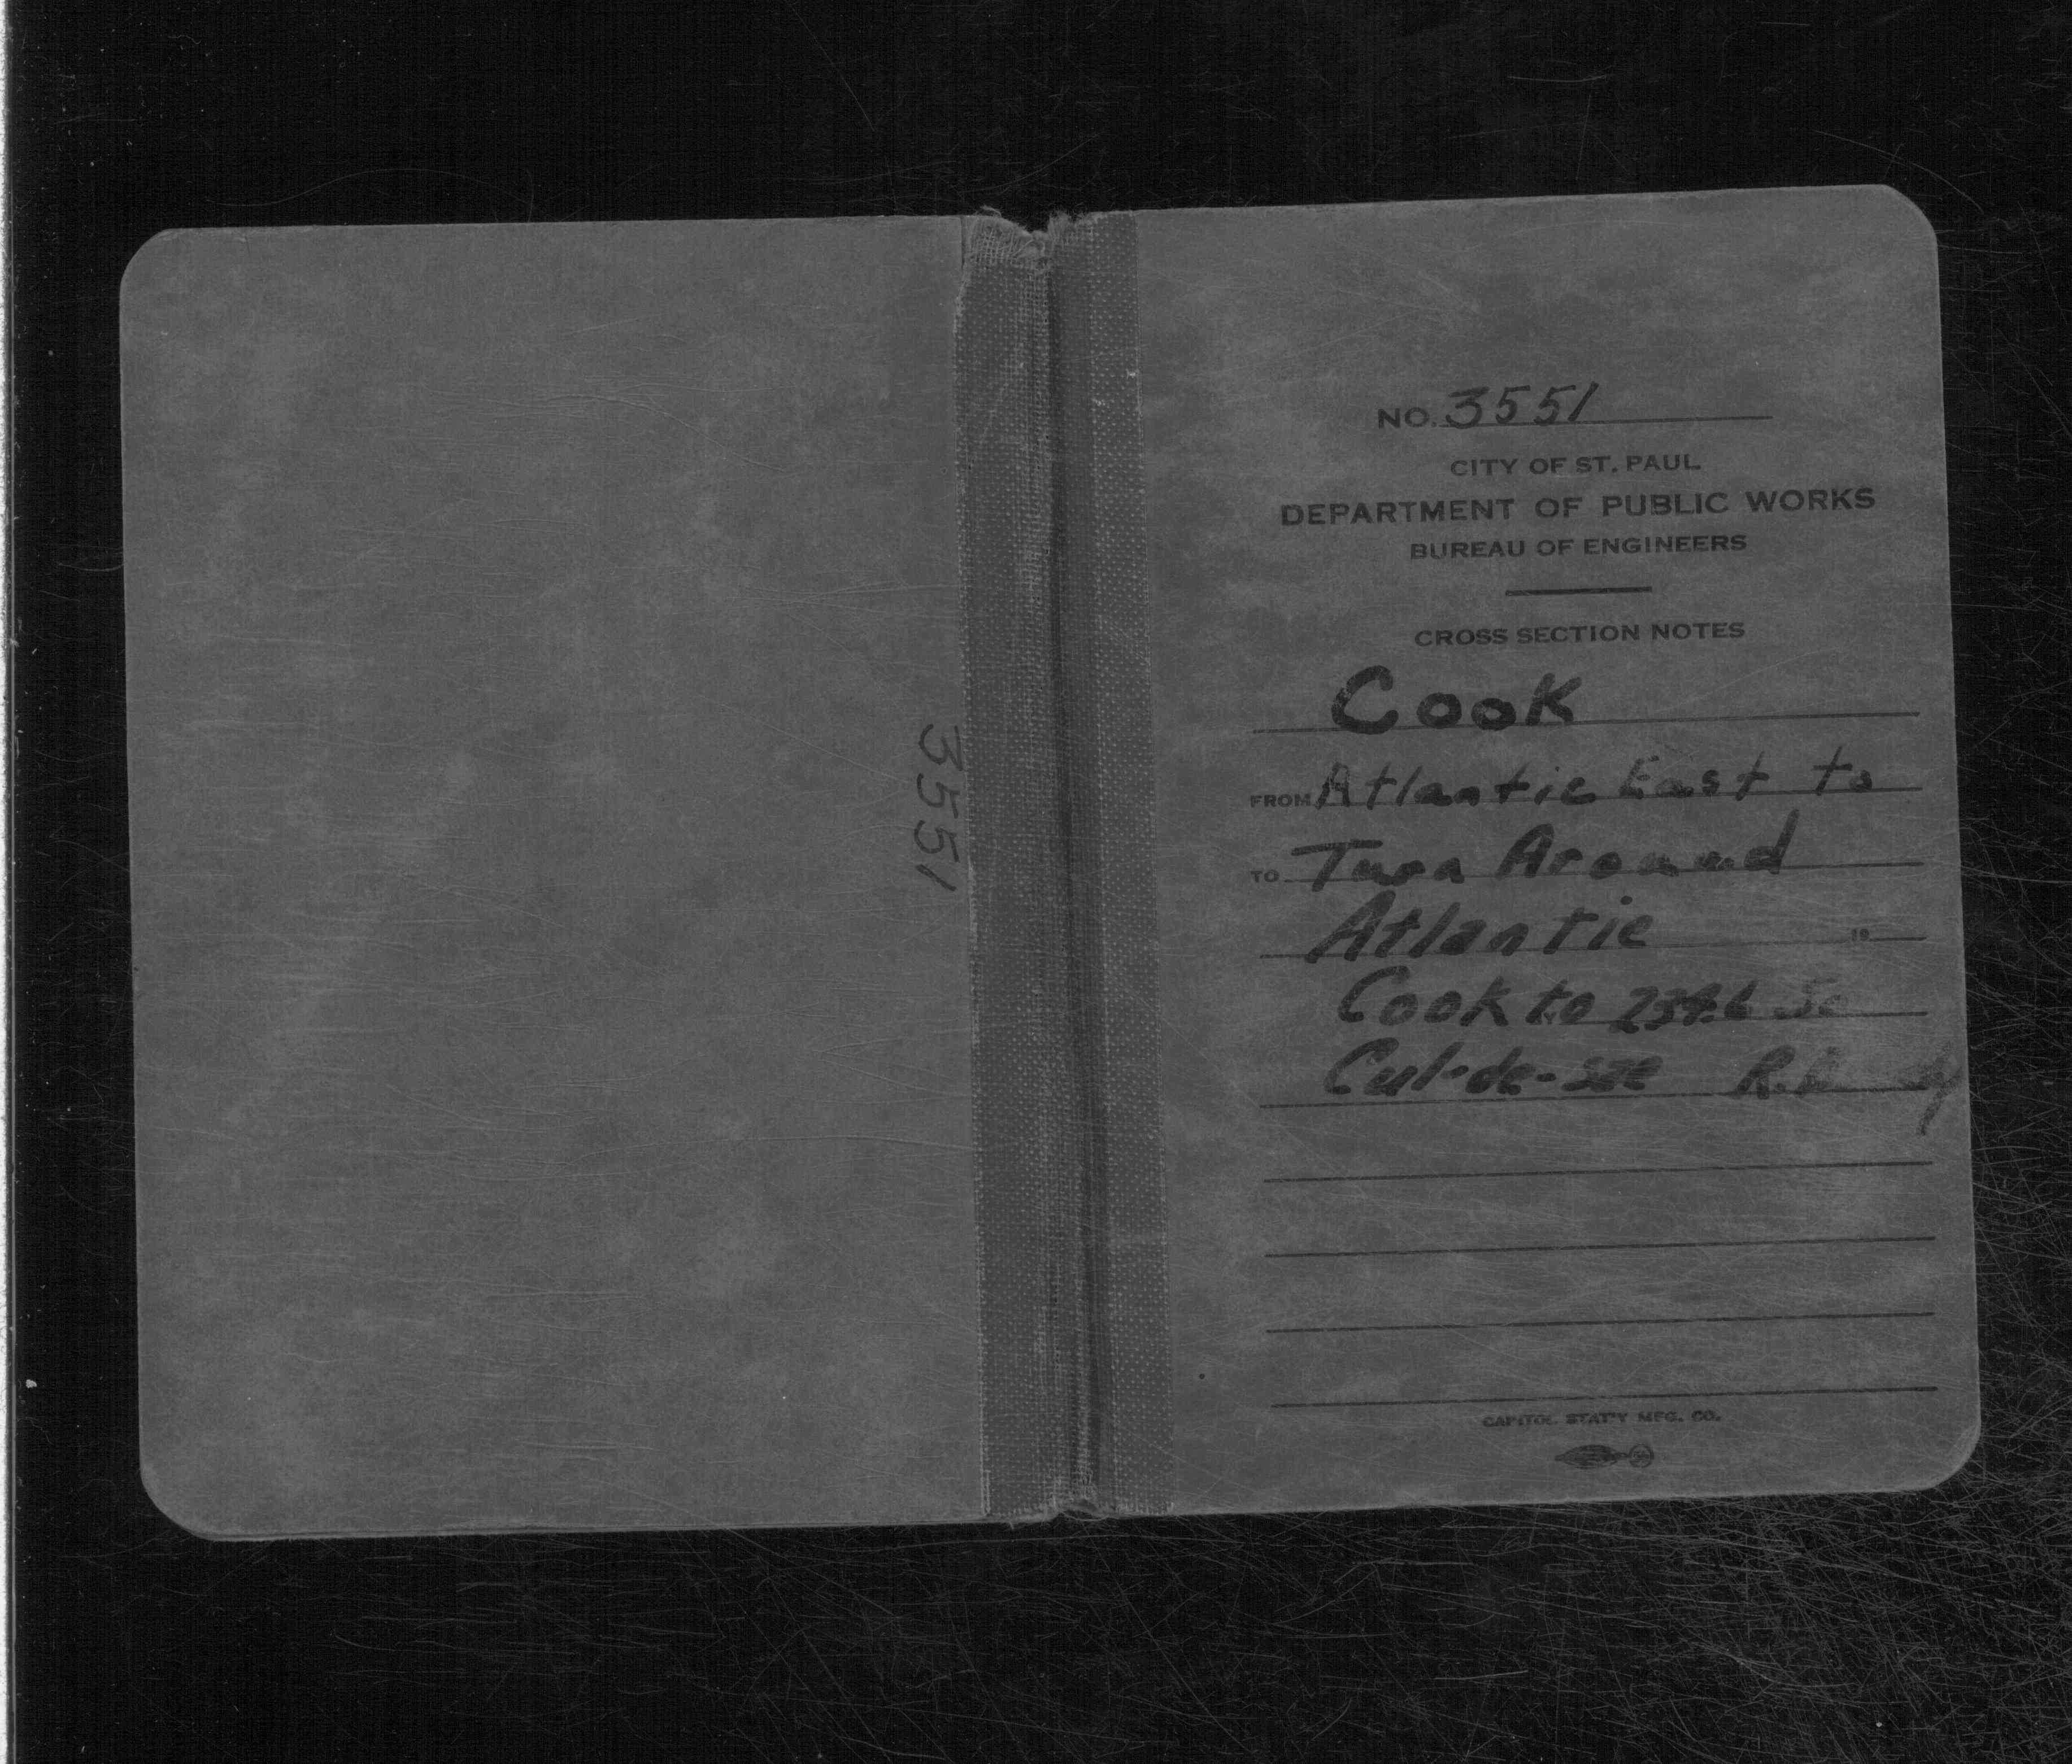 3551
NO. 3551
CITY OF ST. PAUL
DEPARTMENT OF PUBLIC WORKS
BUREAU OF ENGINEERS
CROSS SECTION NOTES
Cook
FROM Atlantic East to
TO Turn Around
Atlantic 19
Cook to So
Cul-de-sac
CAPITOL STAT'Y MFG. CO.